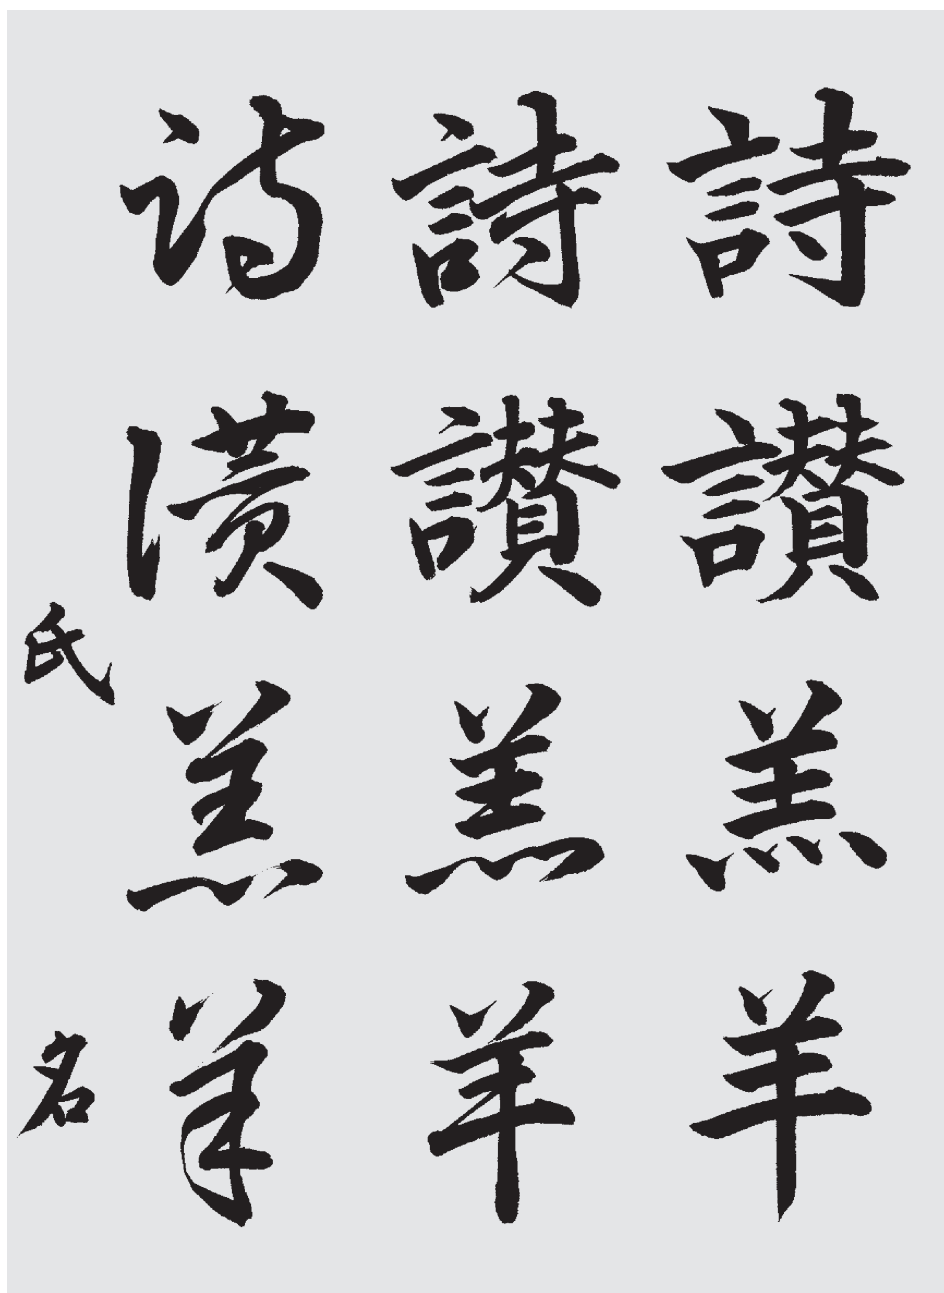 詩讃羔羊
詩讃羔羊
詩讃羔羊
氏名